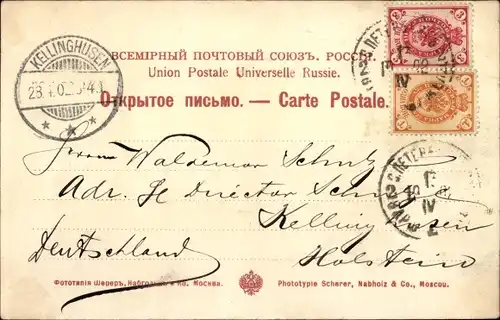 KELLINGHUSEN
ВСЕМІРНЫЙ ПОЧТОВЫЙ СОЮЗЪ. РОССІЯ.
Union Postale Universelle Russie.
Открытое письмо. — Carte Postale.
Herrn Waldemar Schultz
Adr. H. Director Schultz
Kellinghusen
Deutschland Holstein
Фототипія Шереръ, Набгольцъ и Ко. Москва.
Phototypie Scherer, Nabholz & Co., Moscou.